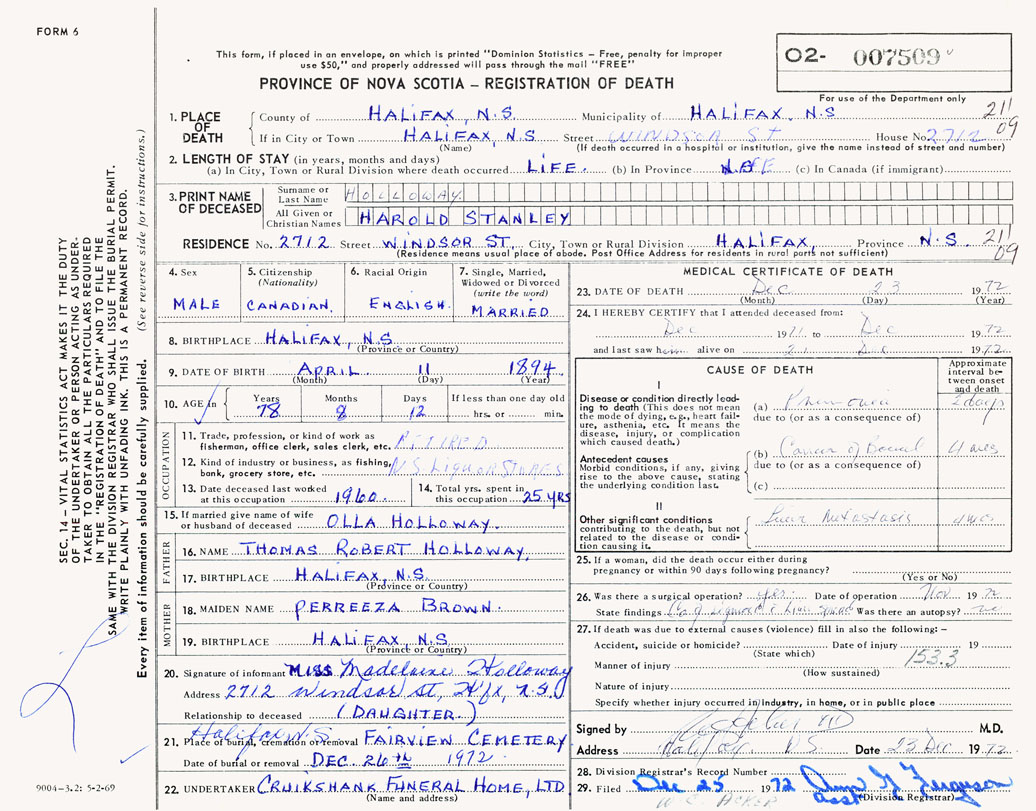 FORM 6
This form, if placed in an envelope, on which is printed "Dominion Statistics – Free, penalty for improper
use $50," and properly addressed will pass through the mail "FREE"
O2- 007509
PROVINCE OF NOVA SCOTIA – REGISTRATION OF DEATH
For use of the Department only
1. PLACE OF DEATH
County of HALIFAX, N.S. Municipality of HALIFAX, N.S
211
09
If in City or Town HALIFAX, N.S Street WINDSOR ST House No. 2712
(Name) (If death occurred in a hospital or institution, give the name instead of street and number)
2. LENGTH OF STAY (in years, months and days)
(a) In City, Town or Rural Division where death occurred LIFE. (b) In Province (c) In Canada (if immigrant)
3. PRINT NAME OF DECEASED
Surname or Last Name HOLLOWAY
All Given or Christian Names HAROLD STANLEY
RESIDENCE No. 2712 Street WINDSOR ST, City, Town or Rural Division HALIFAX, Province N.S. 211
09
(Residence means usual place of abode. Post Office Address for residents in rural parts not sufficient)
4. Sex
MALE
5. Citizenship (Nationality)
CANADIAN.
6. Racial Origin
ENGLISH.
7. Single, Married, Widowed or Divorced (write the word)
MARRIED
8. BIRTHPLACE HALIFAX, N.S
(Province or Country)
9. DATE OF BIRTH APRIL 11 1894
(Month) (Day) (Year)
10. AGE in Years 78 Months 8 Days 12 If less than one day old hrs. or min.
OCCUPATION
11. Trade, profession, or kind of work as fisherman, office clerk, sales clerk, etc. RETIRED
12. Kind of industry or business, as fishing, bank, grocery store, etc. N.S. LIQUOR STORES
13. Date deceased last worked at this occupation 1960.
14. Total yrs. spent in this occupation 25 YRS
15. If married give name of wife or husband of deceased OLLA HOLLOWAY.
FATHER
16. NAME THOMAS ROBERT HOLLOWAY,
17. BIRTHPLACE HALIFAX, N.S.
(Province or Country)
MOTHER
18. MAIDEN NAME PERREEZA BROWN.
19. BIRTHPLACE HALIFAX, N.S
(Province or Country)
20. Signature of informant MISS Madelaine Holloway
Address 2712 Windsor St, H'fx, N.S.
Relationship to deceased (DAUGHTER.)
Halifax N.S
21. Place of burial, cremation or removal FAIRVIEW CEMETERY
Date of burial or removal DEC. 26th 1972
22. UNDERTAKER CRUIKSHANK FUNERAL HOME, LTD
(Name and address)
MEDICAL CERTIFICATE OF DEATH
23. DATE OF DEATH Dec 23 1972
(Month) (Day) (Year)
24. I HEREBY CERTIFY that I attended deceased from:
Dec 1971 to Dec 1972
and last saw him alive on Dec 1972
CAUSE OF DEATH
Approximate interval between onset and death
I
Disease or condition directly leading to death (This does not mean the mode of dying, e.g., heart failure, asthenia, etc. It means the disease, injury, or complication which caused death.)
(a) Pneumonia 2 days
due to (or as a consequence of)
Antecedent causes
Morbid conditions, if any, giving rise to the above cause, stating the underlying condition last.
(b) Cancer of Bowel
due to (or as a consequence of)
(c)
II
Other significant conditions contributing to the death, but not related to the disease or condition causing it.
Liver Metastasis
25. If a woman, did the death occur either during pregnancy or within 90 days following pregnancy?
(Yes or No)
26. Was there a surgical operation? yes. Date of operation Nov. 1972
State findings Ca of Sigmoid & Liver Was there an autopsy? no
27. If death was due to external causes (violence) fill in also the following: –
Accident, suicide or homicide? Date of injury 19
(State which)
153.3
Manner of injury
(How sustained)
Nature of injury
Specify whether injury occurred in Industry, in home, or in public place
Signed by M.D.
Address Halifax N.S. Date 23 Dec 1972
28. Division Registrar's Record Number
29. Filed Dec 25 1972 Ferguson
(Division Registrar)
SEC. 14 – VITAL STATISTICS ACT MAKES IT THE DUTY
OF THE UNDERTAKER OR PERSON ACTING AS UNDER-
TAKER TO OBTAIN ALL THE PARTICULARS REQUIRED
IN THE "REGISTRATION OF DEATH" AND TO FILE THE
SAME WITH THE DIVISION REGISTRAR WHO SHALL ISSUE THE BURIAL PERMIT.
WRITE PLAINLY WITH UNFADING INK. THIS IS A PERMANENT RECORD.
Every item of information should be carefully supplied. (See reverse side for instructions.)
9004-3.2: 5-2-69